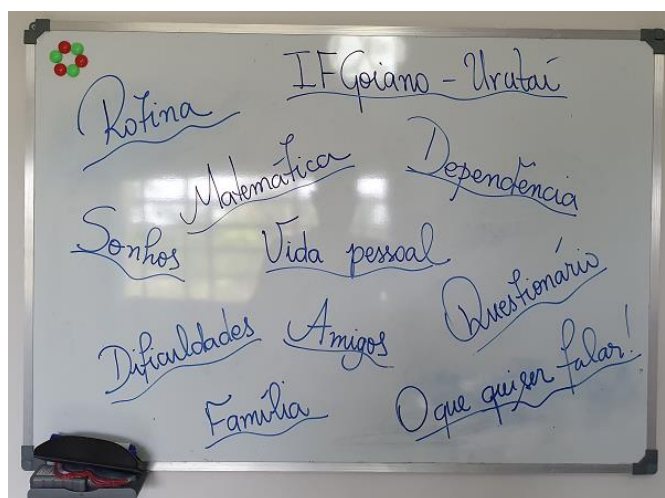 IFGoiano - Urutaí
Rotina
Matemática
Dependência
Sonhos
Vida pessoal
Questionário
Dificuldades
Amigos
Família
O que quiser falar!